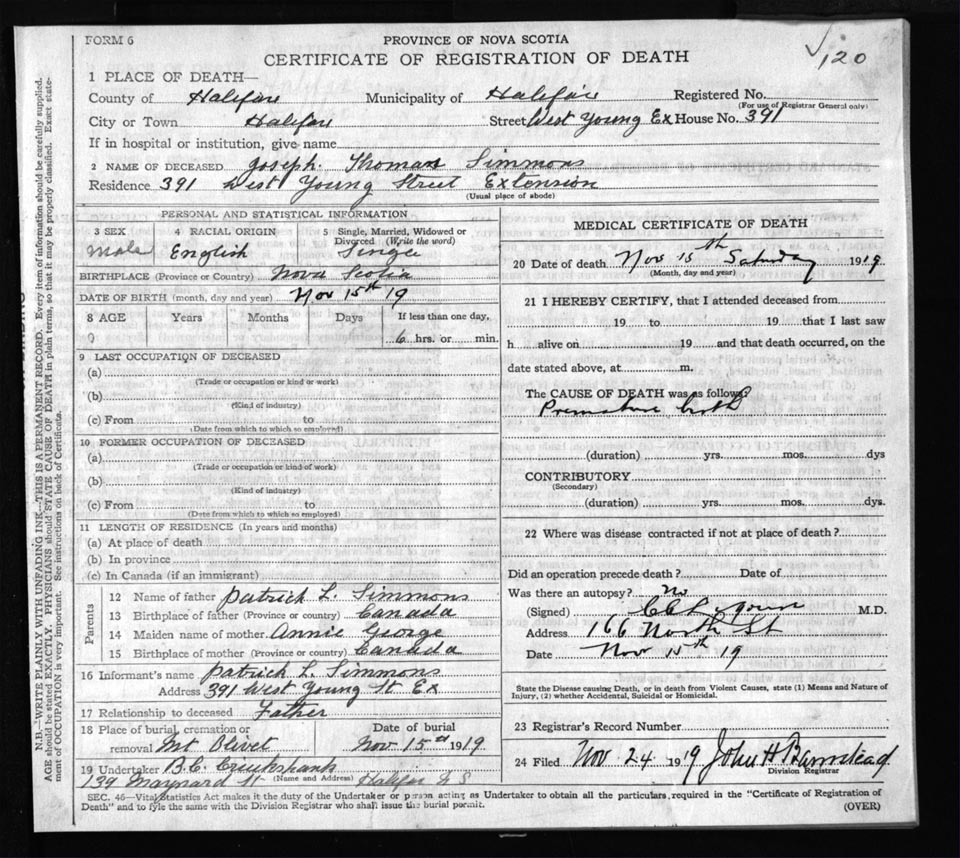 FORM 6
PROVINCE OF NOVA SCOTIA
120
CERTIFICATE OF REGISTRATION OF DEATH
1 PLACE OF DEATH—
County of Halifax Municipality of Halifax Registered No.
(For use of Registrar General only)
City or Town Halifax Street West Young Ex House No. 391
If in hospital or institution, give name
2 NAME OF DECEASED Joseph Thomas Simmons
Residence 391 West Young Street Extension
(Usual place of abode)
PERSONAL AND STATISTICAL INFORMATION
3 SEX 4 RACIAL ORIGIN 5 Single, Married, Widowed or Divorced (Write the word)
Male English Single
BIRTHPLACE (Province or Country) Nova Scotia
DATE OF BIRTH (month, day and year) Nov 15th 19
8 AGE Years Months Days If less than one day,
0 6 hrs. or min.
9 LAST OCCUPATION OF DECEASED
(a)
(Trade or occupation or kind or work)
(b)
(Kind of industry)
(c) From to
(Date from which to which so employed)
10 FORMER OCCUPATION OF DECEASED
(a)
(Trade or occupation or kind of work)
(b)
(Kind of industry)
(c) From to
(Date from which to which so employed)
11 LENGTH OF RESIDENCE (In years and months)
(a) At place of death
(b) In province
(c) In Canada (if an immigrant)
Parents
12 Name of father Patrick L. Simmons
13 Birthplace of father (Province or country) Canada
14 Maiden name of mother Annie George
15 Birthplace of mother (Province or country) Canada
16 Informant's name Patrick L. Simmons
Address 391 West Young St Ex
17 Relationship to deceased Father
18 Place of burial, cremation or removal Mt Olivet
Date of burial Nov 15 1919
19 Undertaker B.C. Cruikshank
139 Maynard St (Name and Address) Halifax N.S.
MEDICAL CERTIFICATE OF DEATH
20 Date of death Nov 15th Saturday 1919
(Month, day and year)
21 I HEREBY CERTIFY, that I attended deceased from
19 to 19 that I last saw
h alive on 19 and that death occurred, on the
date stated above, at m.
The CAUSE OF DEATH was as follows?
Premature birth
(duration) yrs. mos. dys
CONTRIBUTORY
(Secondary)
(duration) yrs. mos. dys.
22 Where was disease contracted if not at place of death?
Did an operation precede death? Date of
Was there an autopsy? No
(Signed) M.D.
Address 166 North St
Date Nov 15th 19
State the Disease causing Death, or in death from Violent Causes, state (1) Means and Nature of
Injury, (2) whether Accidental, Suicidal or Homicidal.
23 Registrar's Record Number
24 Filed Nov 24 1919 John H Barnstead
Division Registrar
SEC. 46—Vital Statistics Act makes it the duty of the Undertaker or person acting as Undertaker to obtain all the particulars, required in the "Certificate of Registration of
Death" and to fyle the same with the Division Registrar who shall issue the burial permit.
(OVER)
N.B.—WRITE PLAINLY WITH UNFADING INK—THIS IS A PERMANENT RECORD. Every item of information should be carefully supplied.
AGE should be stated EXACTLY. PHYSICIANS should STATE CAUSE OF DEATH in plain terms, so that it may be properly classified. Exact state-
ment of OCCUPATION is very important. See instructions on back of Certificate.